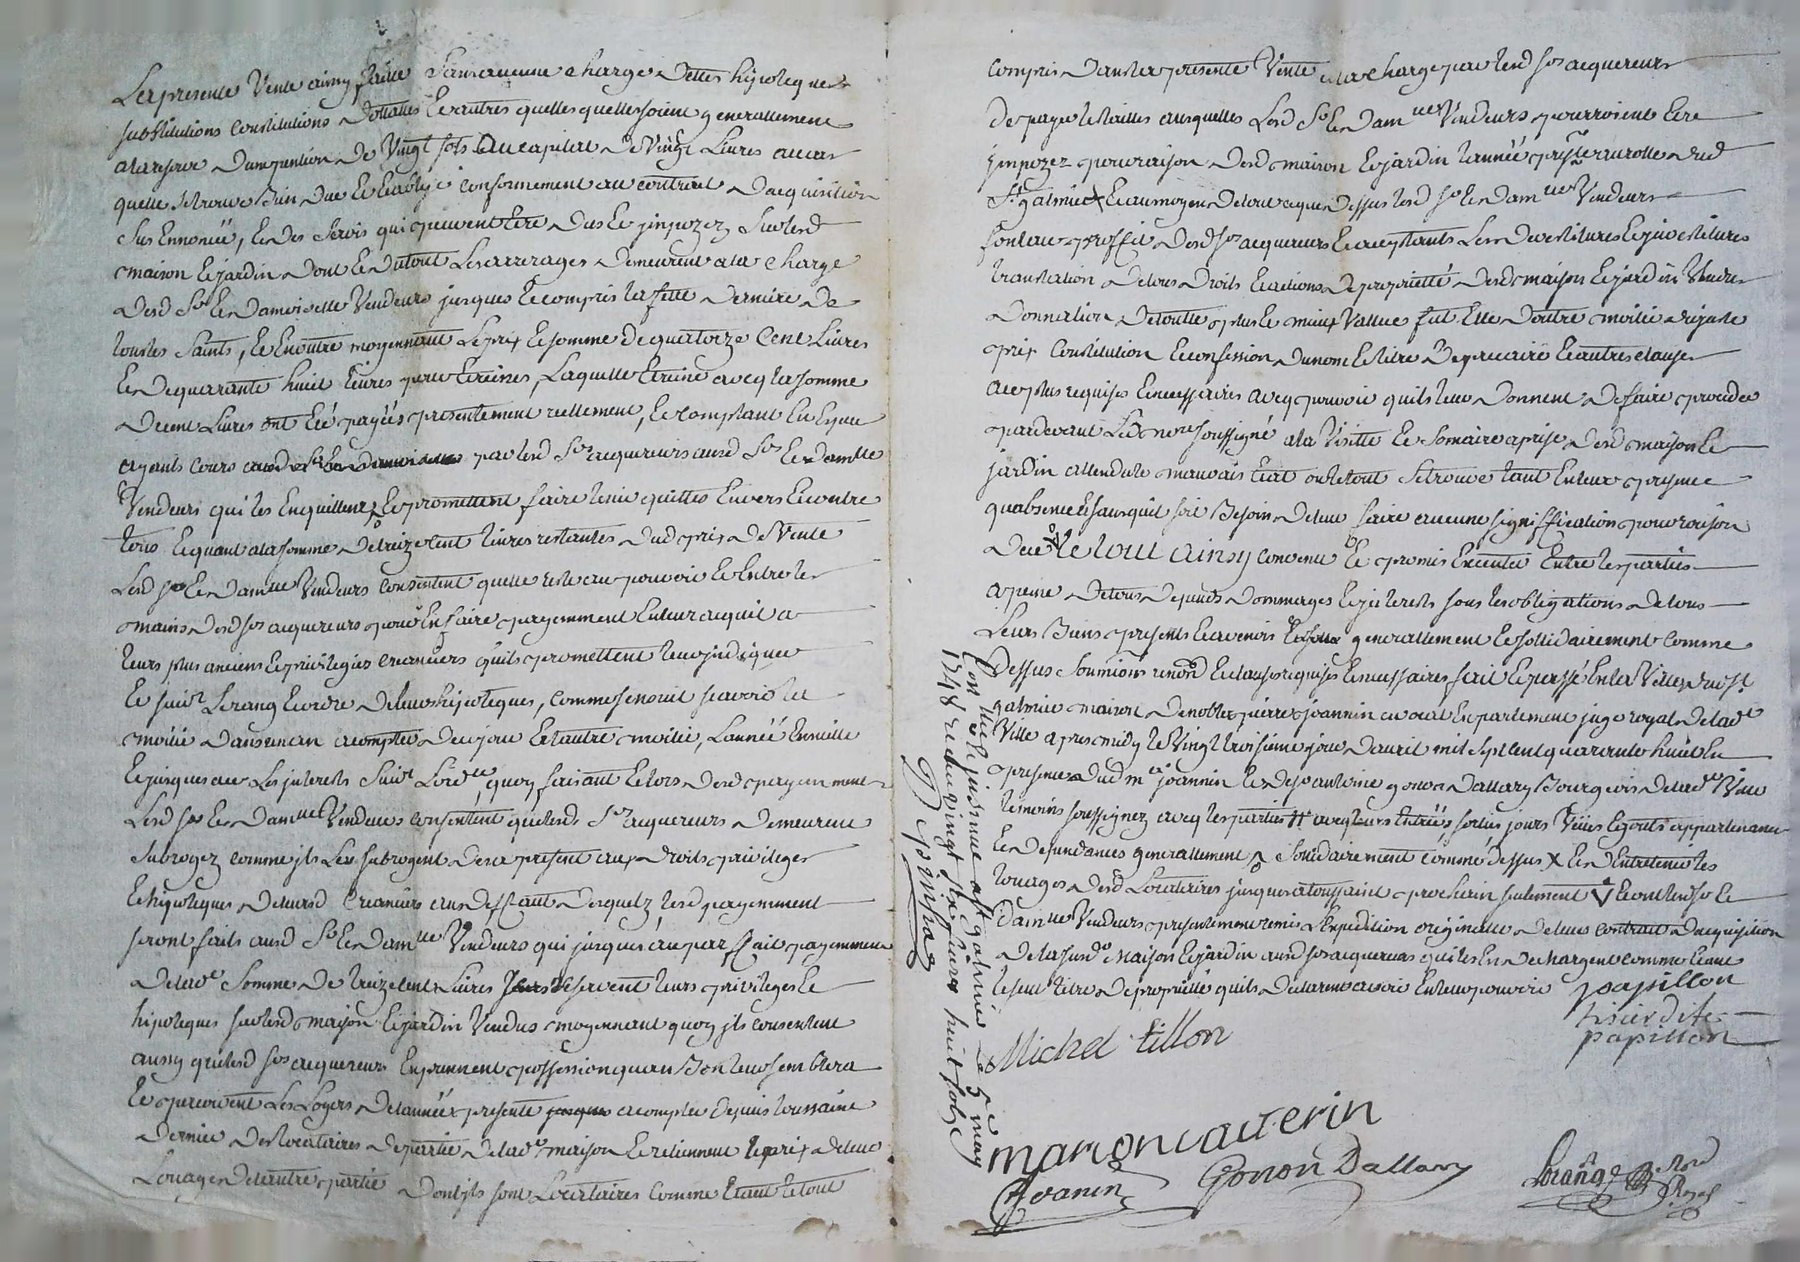 La presente Vente ainsy faitte Sans aucune charge Dettes hipoteques
substitutions constitutions Dottalles Et autres quelles quelles soient generallement
ala reserve Dune pention De Vingt sols Au capital De Vingt Livres au cas
quelle se trouve Bien Due Et Establie conformement au contrait Dacquisition
sus Ennoncé, Et des servis qui peuvent Etre Dus Et jmpozez sur lesd
maison Et jardin Dont Et Du tout Les arrerages Demeurent ala Charge
Desd Srs Et Damoiselle Vendeurs jusques Et compris la fette Derniere De
tous les Saints, Et En outre moyennant Le prix Et somme De quatorze Cent Livres
Et De quarante huit Livres pour Etreines, Laquelle Etreine avecq la somme
De cent Livres ont Eté payées presentement reellement, Et comptant En Espece
ayants cours par lesd Srs acquereurs ausd Srs Et Damlle
Vendeurs qui les En quittent Et promettent faire tenir quittes Envers Et contre
tous Et quant ala somme De treize cent Livres restantes Dud prix De Vente
Lesd Srs Et Damlle Vendeurs consentent quelle reste au pouvoir Et Entre les
mains Desd Srs acquereurs pour En faire payemment En leur acquit a
leurs plus anciens Et privilegiés creanciers quils promettent leur jndiquer
Et suivt Le rang Et ordre De leurs hipoteques, comme sensuit scavoir La
moitié Dans un an a compter De ce jour Et lautre moitié, L année Ensuitte
Et jusques au Les jnterests suivt Lordce quoy faisant Et lors Desd payemment
Lesd Srs Et Damlle Vendeurs consentent que lesd Srs acquereurs Demeurent
subrogez comme jls Les subrogent Des a present aux Droits privileges
Et hipoteques De leursd Creanciers aus Deffaut Desquelz lesd payemment
seront faits ausd Srs Et Damlle Vendeurs qui jusques au parfait payemment
De lade Somme De treize cent Livres Reservent leurs privileges Et
hipoteques sur lesd maison Et jardin Vendus moyennant quoy jls consentent
aussy que lesd Srs acquereurs En prennent possession quan Bon leur semblera
Et percoivent Les Loyers De lannée presente a compter Depuis toussaint
Dernier Des locataires De partie De lade maison Et retiennent le prix De leur
Louage De lautre partie Dont jls sont Locataires Comme Etant Le tout
compris Dans la presente Vente ala Charge par lesd Srs acquereurs
De payer les tailles ausquelles Lesd Srs Et Damlle Vendeurs pourroient Etre
jmpozez pour raison Desd maison Et jardin Lannée presente au rolle Dud
St galmier Et au moyen De tout ce que Dessus lesd Srs Et Damlle Vendeurs
font au proffit Desd Srs acquereurs Et acceptants Les Devestitures Et jnvestitures
translation De tous Droits Et actions De propriété Desd maison Et jardin Vendus
Donnation De toutte plus Et mieux Vallue fut Elle Doutre moitié De juste
prix Constitution Et confession Du nom Et titre De precaire Et autres clauses
a ce plus requises Et necessaires avecq pouvoir quils leur Donnent De faire proceder
par devant Led nore soussigné ala Visitte Et Somaire aprise Desd maison Et
jardin attendu le mauvais Etat ou le tout se trouve tant En leur presence
quabsence Et sans quil soit Besoin De leur faire aucune signiffication pour raison
De ce Le tout ainsy convenu Et promis Executer Entre les parties
a peine De tous Depends Dommages Et jnterests sous les obligations De tous
Leurs Biens presents Et avenirs generallement Et sollidairement comme
Dessus Soumions renond Et clauses requises Et necessaires fait Et passé En la Ville de St
galmier maison De noble pierre joannin avocat En parlement juge royal De lade
Ville apres midy le Vingt troisième jour Davril mil sept cent quarante huit En
presence Dud me joannin Et De sr antoine gonon Dallary Bourgeois De lade Ville
temoins soussignez avecq les parties avecq leurs Entrées sorties jours Vües Egouts appartenances
Et Dependances generallement Solidairement comme Dessus X Et D'Entretenir les
louages Desd Locataires jusques a toussaint prochain seulement Et ont lesd Srs Et
Damlle Vendeurs presentemment remis L'Expedition originalle De leur contrait Dacquisition
De la susde Maison Et jardin ausd Srs acquereurs qui les En Dechargent comme Etant
le seul titre De propriété quils Declarent avoir En leur pouvoir papillon
tisierditte
papillon
Michel tillon
marion caverin
Joanin
Gonon Dallary
Con lle et jnssinué a St galmier Le 5e may
1748 recu vingt six livres huit sols
Depinhac